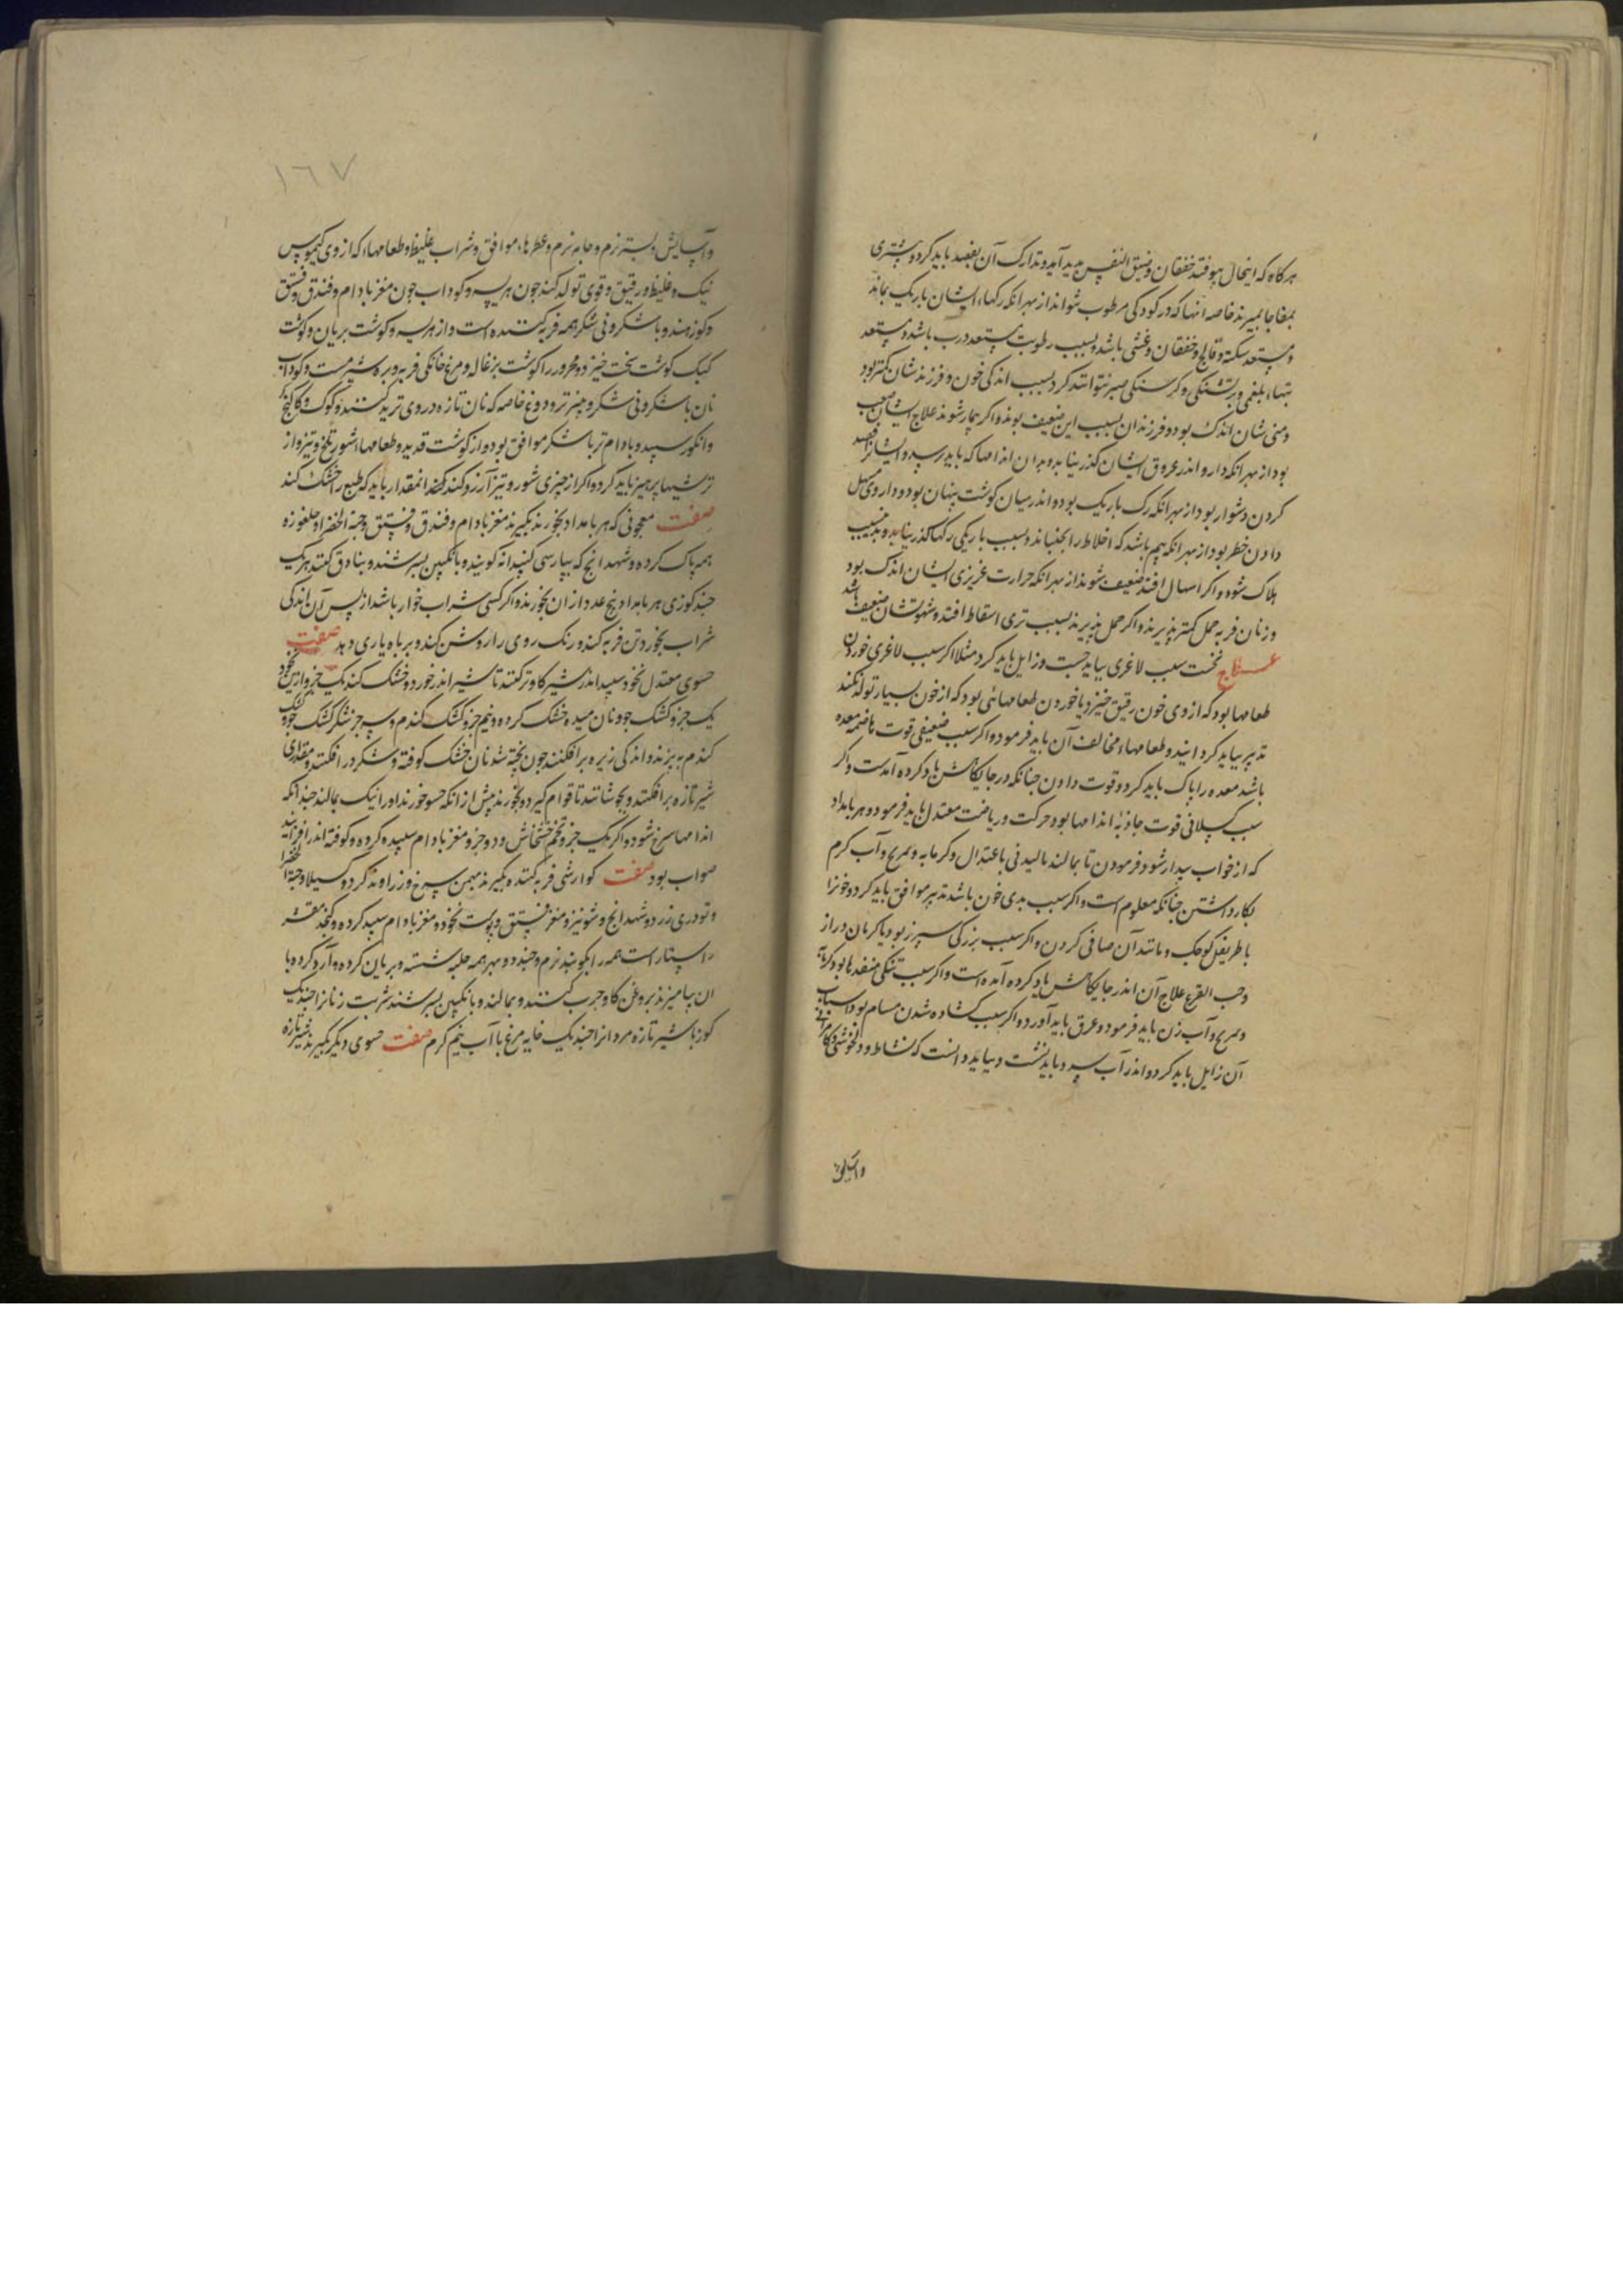 هرکاه که اینحال بیوفتد خفقان و ضیق النفس بدید آید و تدارک آن بفصد باید کرد و بیشتری
بمفاجا بمیرند خاصه انها که در کودکی مرطوب شوند از بهر انکه رکهاء ایشان باریک بماند
و مستعد سکته و فالج و خفقان و غشی باشد و بسبب رطوبت مستعد درب باشد و مستعد
تبهاء بلغمی و بر تشنکی و کرسنکی صبر نتوانند کرد بسبب اندکی خون و فرزندشان کمتر بود
و منی شان اندک بود و فرزندان بسبب این ضعیف بوند و اکر بیمار شوند علاج ایشان صعب
بود از بهر انکه دارو اندر عروق ایشان کذر نیابد و بدان اندامها که باید نرسد و ایشانرا فصد
کردن دشوار بود از بهر انکه رک باریک بود و اندر میان کوشت پنهان بود و داروی مسهل
دادن خطر بود از بهر انکه بیم باشد که اخلاط را بجنباند و بسبب باریکی رکها کذر نیابد و بدین سبب
هلاک شود و اکر اسهال افتد ضعیف شوند از بهر انکه حرارت غریزی ایشان اندک بود
و زنان فربه حمل کمتر پذیرند و اکر حمل پذیرند بسبب تری اسقاط افتد و شهوتشان ضعیف باشد
علاج نخست سبب لاغری بباید جست و زایل باید کرد مثلا اکر سبب لاغری خوردن
طعامها بود که از وی خون رقیق خیزد یا خوردن طعامهائی بود که از خون بسیار تولد نکند
تدبیر بباید کردانید و طعامهاء مخالف آن باید فرمود و اکر سبب ضعیفی قوت هاضمه معده
باشد معده را پاک باید کرد و قوت دادن جنانکه در جایکاهش یاد کرده آمدست و اکر
سبب کسلانی قوت جاذبه اندامها بود حرکت و ریاضت معتدل باید فرمود و هر بامداد
که از خواب بیدار شود فرمودن تا بمالند مالیدنی باعتدال و کرمابه و تمریخ و آب کرم
بکار داشتن جنانکه معلوم است و اکر سبب بدی خون باشد تدبیر موافق باید کرد و خونرا
باطریفل کوجک و مانند آن صافی کردن و اکر سبب بزرکی سپرز بود یا کرمان دراز
و حب القرع علاج آن اندر جایکاهش یاد کرده آمده است و اکر سبب تنکی منفذها بود کرمابه
و تمریخ و آب زن باید فرمود و عرق باید آورد و اکر سبب کشاده شدن مسام بود اسباب
آن زایل باید کرد و اندر آب سرد باید نشست و بباید دانست که نشاط و دلخوشی و کامرانی
و آسایش
١٦٧
و آسایش و بستر نرم و جامه نرم و عطرهاء موافق و شراب غلیظ و طعامهاء که از وی کیموس
نیک و غلیظ و رقیق و قوی تولد کند جون هریسه و کوداب جون مغز بادام و فندق و فستق
و کوز هندو با شکر و بی شکر همه فربه کننده است و از هریسه و کوشت بریان و کوشت
کبک کوشت سخت خیزد و محرور را کوشت بزغاله و مرغ خانکی فربه و بره شیرمست و کوداب
نان با شکر و بی شکر و پنیر تر و دوغ خاصه که نان تازه در وی ترید کنند و کوک و کاکنج
و انکور سپید و بادام تر با شکر موافق بود و از کوشت قدید و طعامهاء شور و تلخ و تیز و از
ترشیها پرهیز باید کرد و اکر از جیزی شور و تیز آرزو کند کند انمقدار باید که طبع را خشک کند
صفت معجونی که هر بامداد بخورند بکیرند مغز بادام و فندق و فستق و حبة الخضرا و جلغوزه
همه پاک کرده و شهدانج که بپارسی کنبدانه کویند و بانکبین بسرشند و بنادق کنند هر یک
جند کوزی هر بامداد پنج عدد از ان بخورند و اکر کسی شراب خوار باشد از پس آن اندکی
شراب بخورد تن فربه کند و رنک روی را روشن کند و بر باه یاری دهد صفت
حسوی معتدل نخود سپید اندر شیر کاو تر کنند تا شیر اندر خورد و خشک کنند یک جزو از این نخود
یک جزو کشک جو و نان میده خشک کرده و نیم جزو کشک کندم و سه جز شکر کشک جو و کشک
کندم بپزند و اندکی زیره برافکنند جون پخته شد نان خشک کوفته و شکر درافکنند و مقداری
شیر تازه برافکنند و بجوشانند تا قوام کیرد و بخورند پیش از انکه حسو خورند او را نیک بمالند جندانکه
اندامها سرخ شود و اکر یک جزو تخم خشخاش و دو جزو مغز بادام سپید کرده و کوفته اندر افزایند
صواب بود صفت کوارشی فربه کننده بکیرند بهمن سرخ و زراوند کرد و کسیلا و حبة الخضرا
و تودری زرد و شهدانج و شونیز و مغز فستق و پوست نخود و مغز بادام سپید کرده و کنجد مقشر
راستا راست همه را بکوبند نرم و جند دو بهر همه حلبه شسته و بریان کرده و آرد کرده با
ان بیامیزند بروغن کاو جرب کنند و بمالند و بانکبین بسرشند شربت زنانرا جند یک
کوز با شیر تازه مردانرا جند یک خایه مرغ با آب نیم کرم صفت حسوی دیکر بکیرند شیر تازه